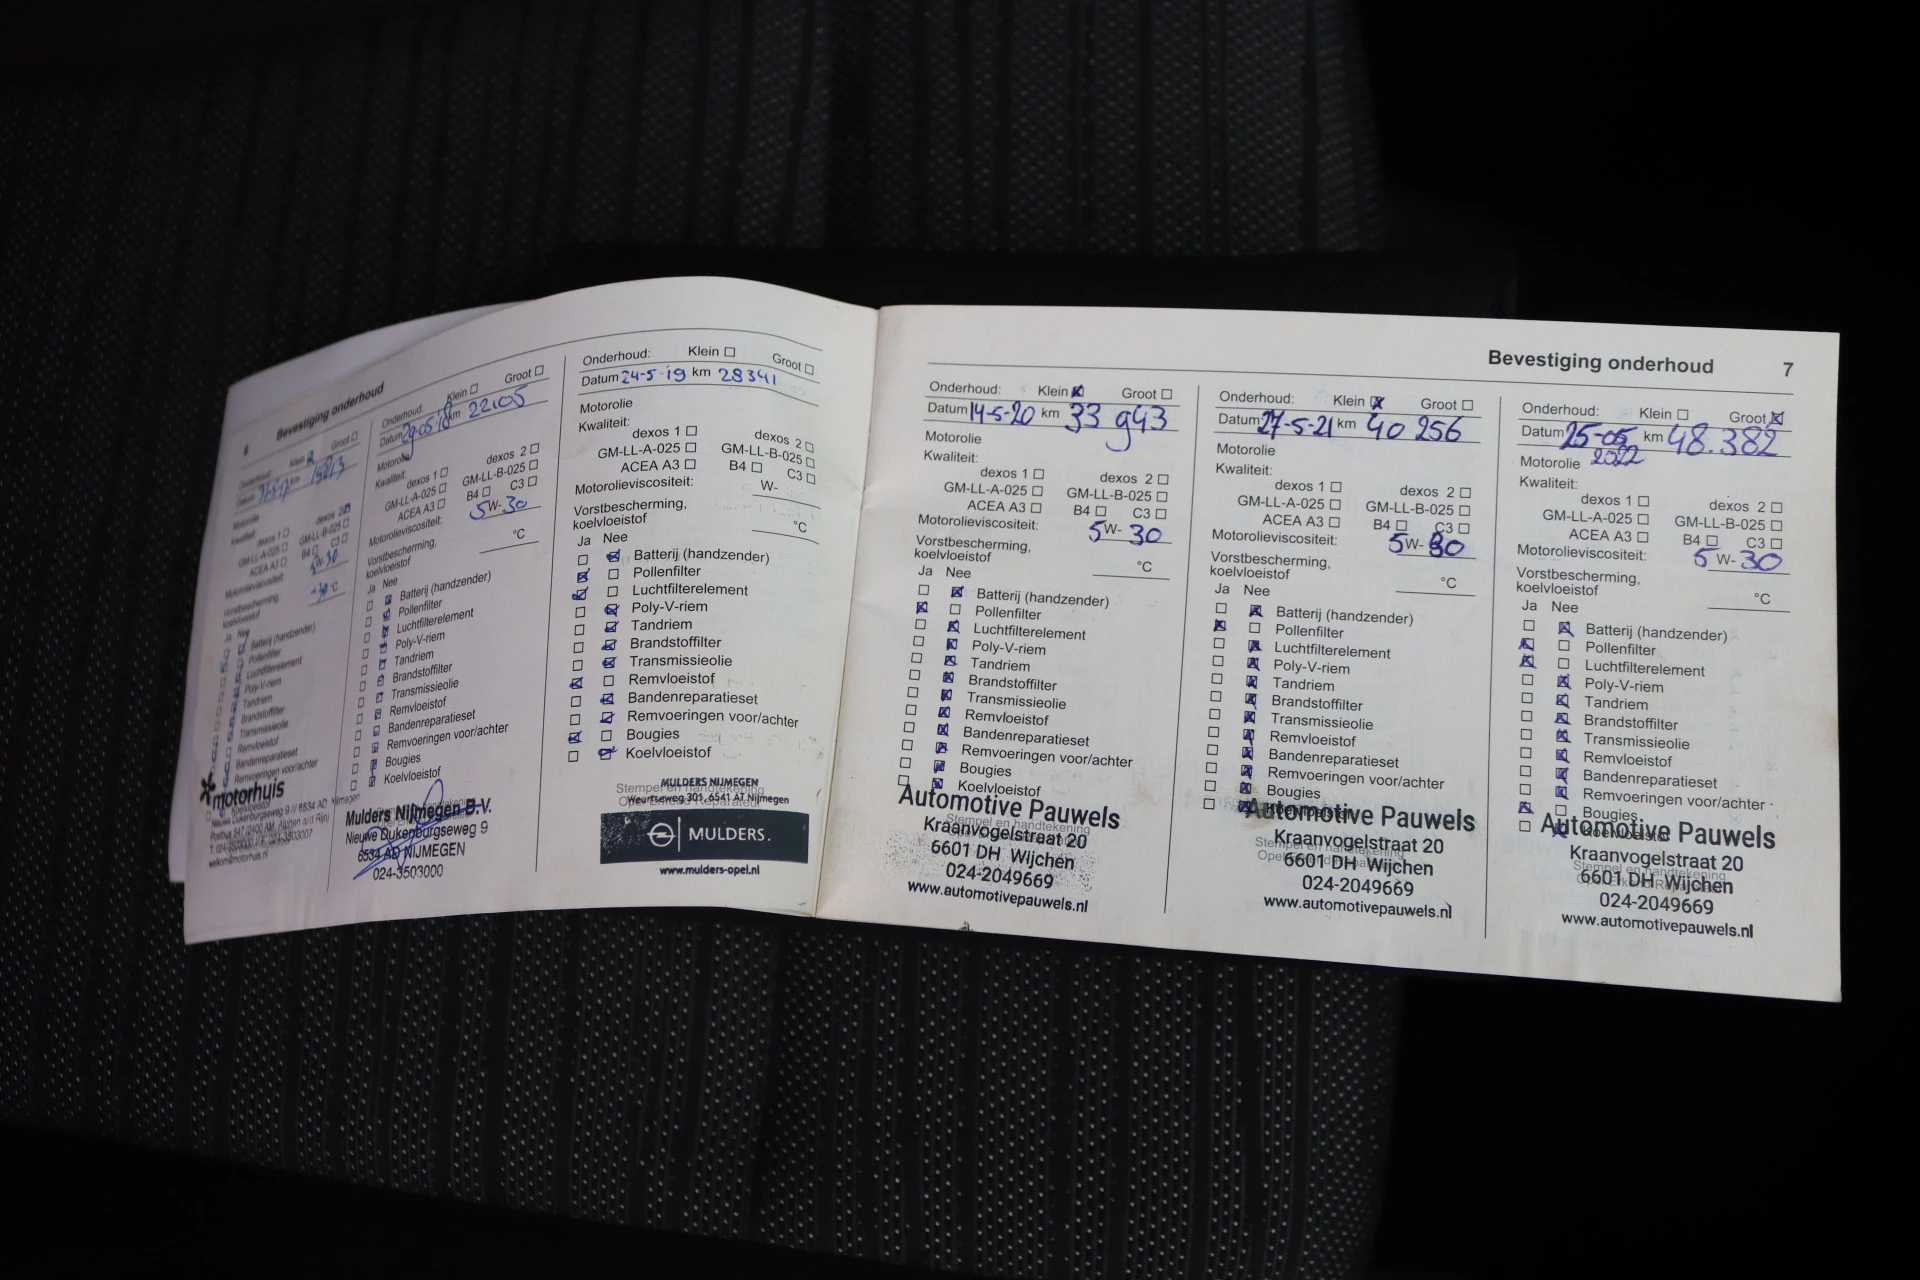 6 Bevestiging onderhoud
Onderhoud: Klein Groot
Datum km
Motorolie
Kwaliteit: dexos 1 dexos 2
GM-LL-A-025 GM-LL-B-025
ACEA A3 B4 C3
Motorolieviscositeit: 5W-30
Vorstbescherming, °C
koelvloeistof
Ja Nee
Batterij (handzender)
Pollenfilter
Luchtfilterelement
Poly-V-riem
Tandriem
Brandstoffilter
Transmissieolie
Remvloeistof
Bandenreparatieset
Remvoeringen voor/achter
motorhuis
Nieuwe Dukenburgseweg 9 // 6534 AD Nijmegen
welkom@motorhuis.nl
Onderhoud: Klein Groot
Datum 29-05-18 km 22105
Motorolie
Kwaliteit:
dexos 1 dexos 2
GM-LL-A-025 GM-LL-B-025
ACEA A3 B4 C3
Motorolieviscositeit: 5W-30
Vorstbescherming,
koelvloeistof °C
Ja Nee
Batterij (handzender)
Pollenfilter
Luchtfilterelement
Poly-V-riem
Tandriem
Brandstoffilter
Transmissieolie
Remvloeistof
Bandenreparatieset
Remvoeringen voor/achter
Bougies
Koelvloeistof
Mulders Nijmegen B.V.
Nieuwe Dukenburgseweg 9
6534 AD NIJMEGEN
024-3503000
Onderhoud: Klein Groot
Datum 24-5-19 km 28341
Motorolie
Kwaliteit:
dexos 1 dexos 2
GM-LL-A-025 GM-LL-B-025
ACEA A3 B4 C3
Motorolieviscositeit: W-
Vorstbescherming,
koelvloeistof °C
Ja Nee
Batterij (handzender)
Pollenfilter
Luchtfilterelement
Poly-V-riem
Tandriem
Brandstoffilter
Transmissieolie
Remvloeistof
Bandenreparatieset
Remvoeringen voor/achter
Bougies
Koelvloeistof
MULDERS NIJMEGEN
Stempel en handtekening
Weurtseweg 301, 6541 AT Nijmegen
MULDERS.
www.mulders-opel.nl
Bevestiging onderhoud 7
Onderhoud: Klein Groot
Datum 14-5-20 km 33 943
Motorolie
Kwaliteit:
dexos 1 dexos 2
GM-LL-A-025 GM-LL-B-025
ACEA A3 B4 C3
Motorolieviscositeit: 5W-30
Vorstbescherming,
koelvloeistof °C
Ja Nee
Batterij (handzender)
Pollenfilter
Luchtfilterelement
Poly-V-riem
Tandriem
Brandstoffilter
Transmissieolie
Remvloeistof
Bandenreparatieset
Remvoeringen voor/achter
Bougies
Koelvloeistof
Automotive Pauwels
Stempel en handtekening
Kraanvogelstraat 20
6601 DH Wijchen
024-2049669
www.automotivepauwels.nl
Onderhoud: Klein Groot
Datum 27-5-21 km 40 256
Motorolie
Kwaliteit:
dexos 1 dexos 2
GM-LL-A-025 GM-LL-B-025
ACEA A3 B4 C3
Motorolieviscositeit: 5W-30
Vorstbescherming,
koelvloeistof °C
Ja Nee
Batterij (handzender)
Pollenfilter
Luchtfilterelement
Poly-V-riem
Tandriem
Brandstoffilter
Transmissieolie
Remvloeistof
Bandenreparatieset
Remvoeringen voor/achter
Bougies
Automotive Pauwels
Kraanvogelstraat 20
Stempel en handtekening
6601 DH Wijchen
024-2049669
www.automotivepauwels.nl
Onderhoud: Klein Groot
Datum 25-05 km 48.382
Motorolie 2022
Kwaliteit:
dexos 1 dexos 2
GM-LL-A-025 GM-LL-B-025
ACEA A3 B4 C3
Motorolieviscositeit: 5W-30
Vorstbescherming,
koelvloeistof °C
Ja Nee
Batterij (handzender)
Pollenfilter
Luchtfilterelement
Poly-V-riem
Tandriem
Brandstoffilter
Transmissieolie
Remvloeistof
Bandenreparatieset
Remvoeringen voor/achter
Bougies
Koelvloeistof
Automotive Pauwels
Kraanvogelstraat 20
Stempel en handtekening
6601 DH Wijchen
024-2049669
www.automotivepauwels.nl